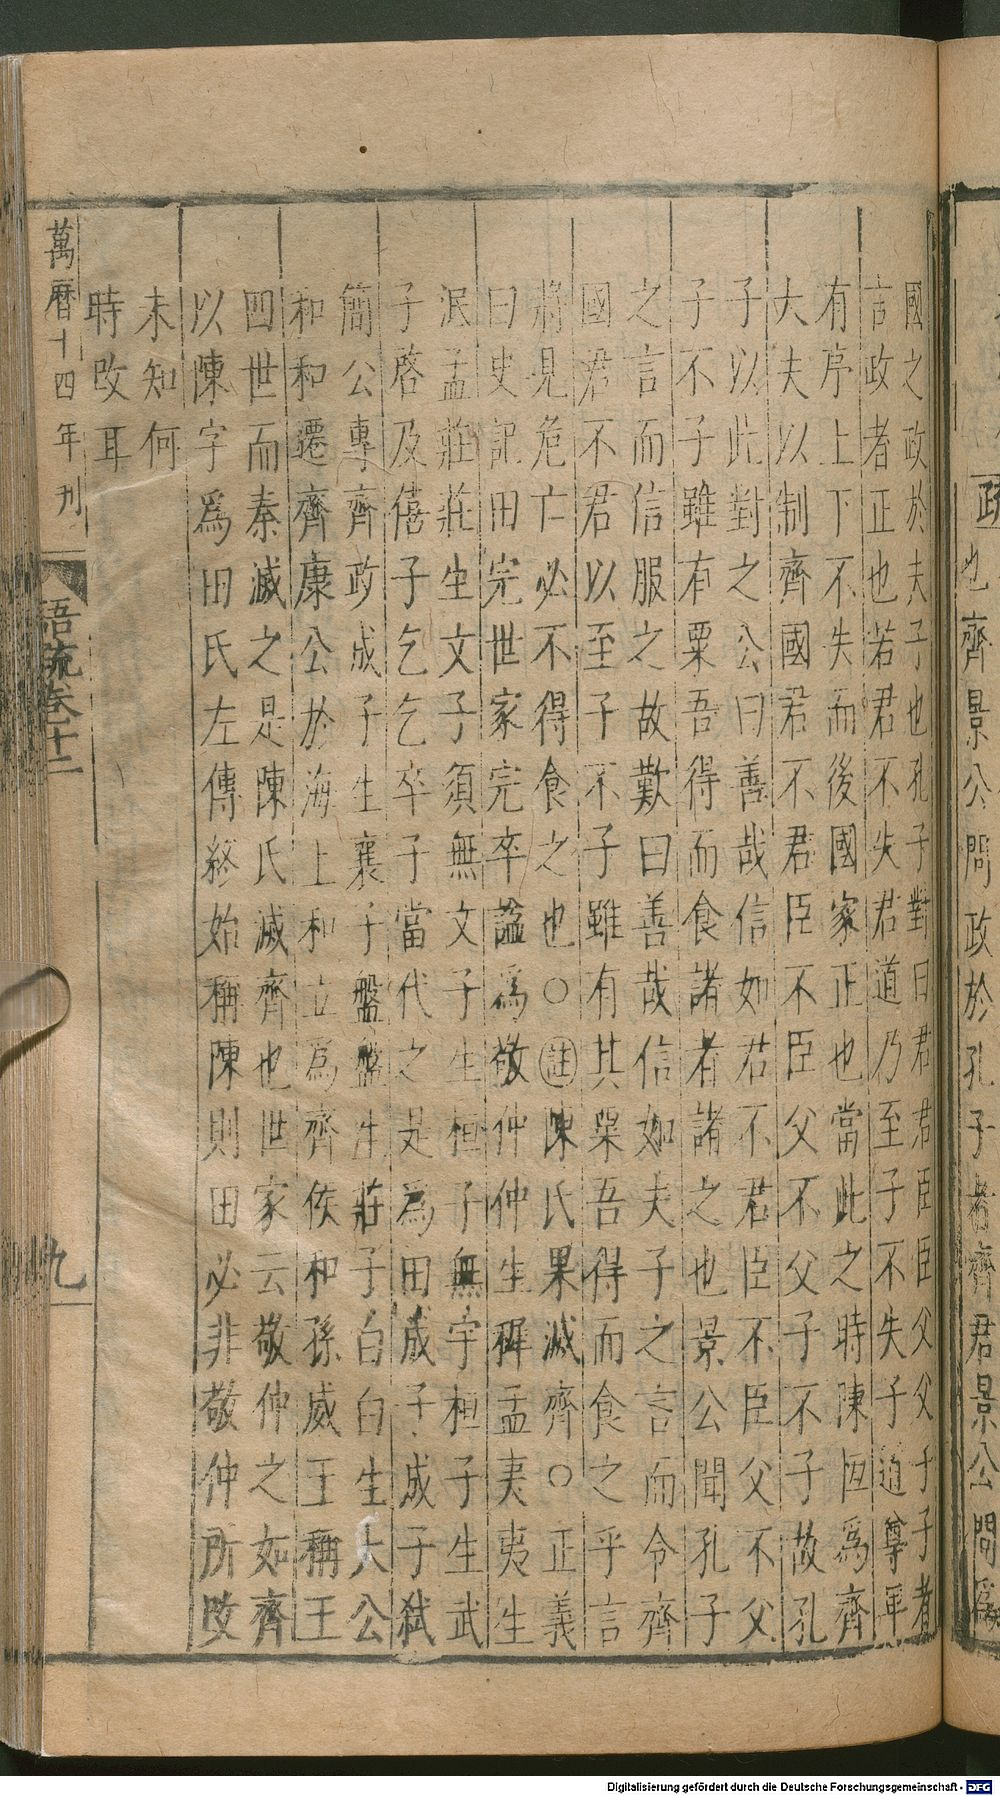 疏也齊景公問政於孔子者齊君景公問爲
國之政於夫子也孔子對曰君君臣臣父父子子者
言政者正也若君不失君道乃至子不失子道尊卑
有序上下不失而後國家正也當此之時陳恒爲齊
大夫以制齊國君不君臣不臣父不父子不子故孔
子以此對之公曰善哉信如君不君臣不臣父不父
子不子雖有粟吾得而食諸者諸之也景公聞孔子
之言而信服之故歎曰善哉信如夫子之言而令齊
國君不君以至子不子雖有其粟吾得而食之乎言
將見危亡必不得食之也○註陳氏果滅齊○正義
曰史記田完世家完卒諡爲敬仲仲生稺孟夷夷生
泯孟莊莊生文子須無文子生桓子無宇桓子生武
子啓及僖子乞乞卒子當代之是爲田成子成子弑
簡公專齊政成子生襄子盤盤生莊子白白生大公
和和遷齊康公於海上和立爲齊侯和孫威王稱王
四世而秦滅之是陳氏滅齊也世家云敬仲之如齊
以陳字爲田氏左傳終始稱陳則田必非敬仲所改
未知何
時改耳
萬曆十四年刊
語疏卷十二
九
Digitalisierung gefördert durch die Deutsche Forschungsgemeinschaft - DFG